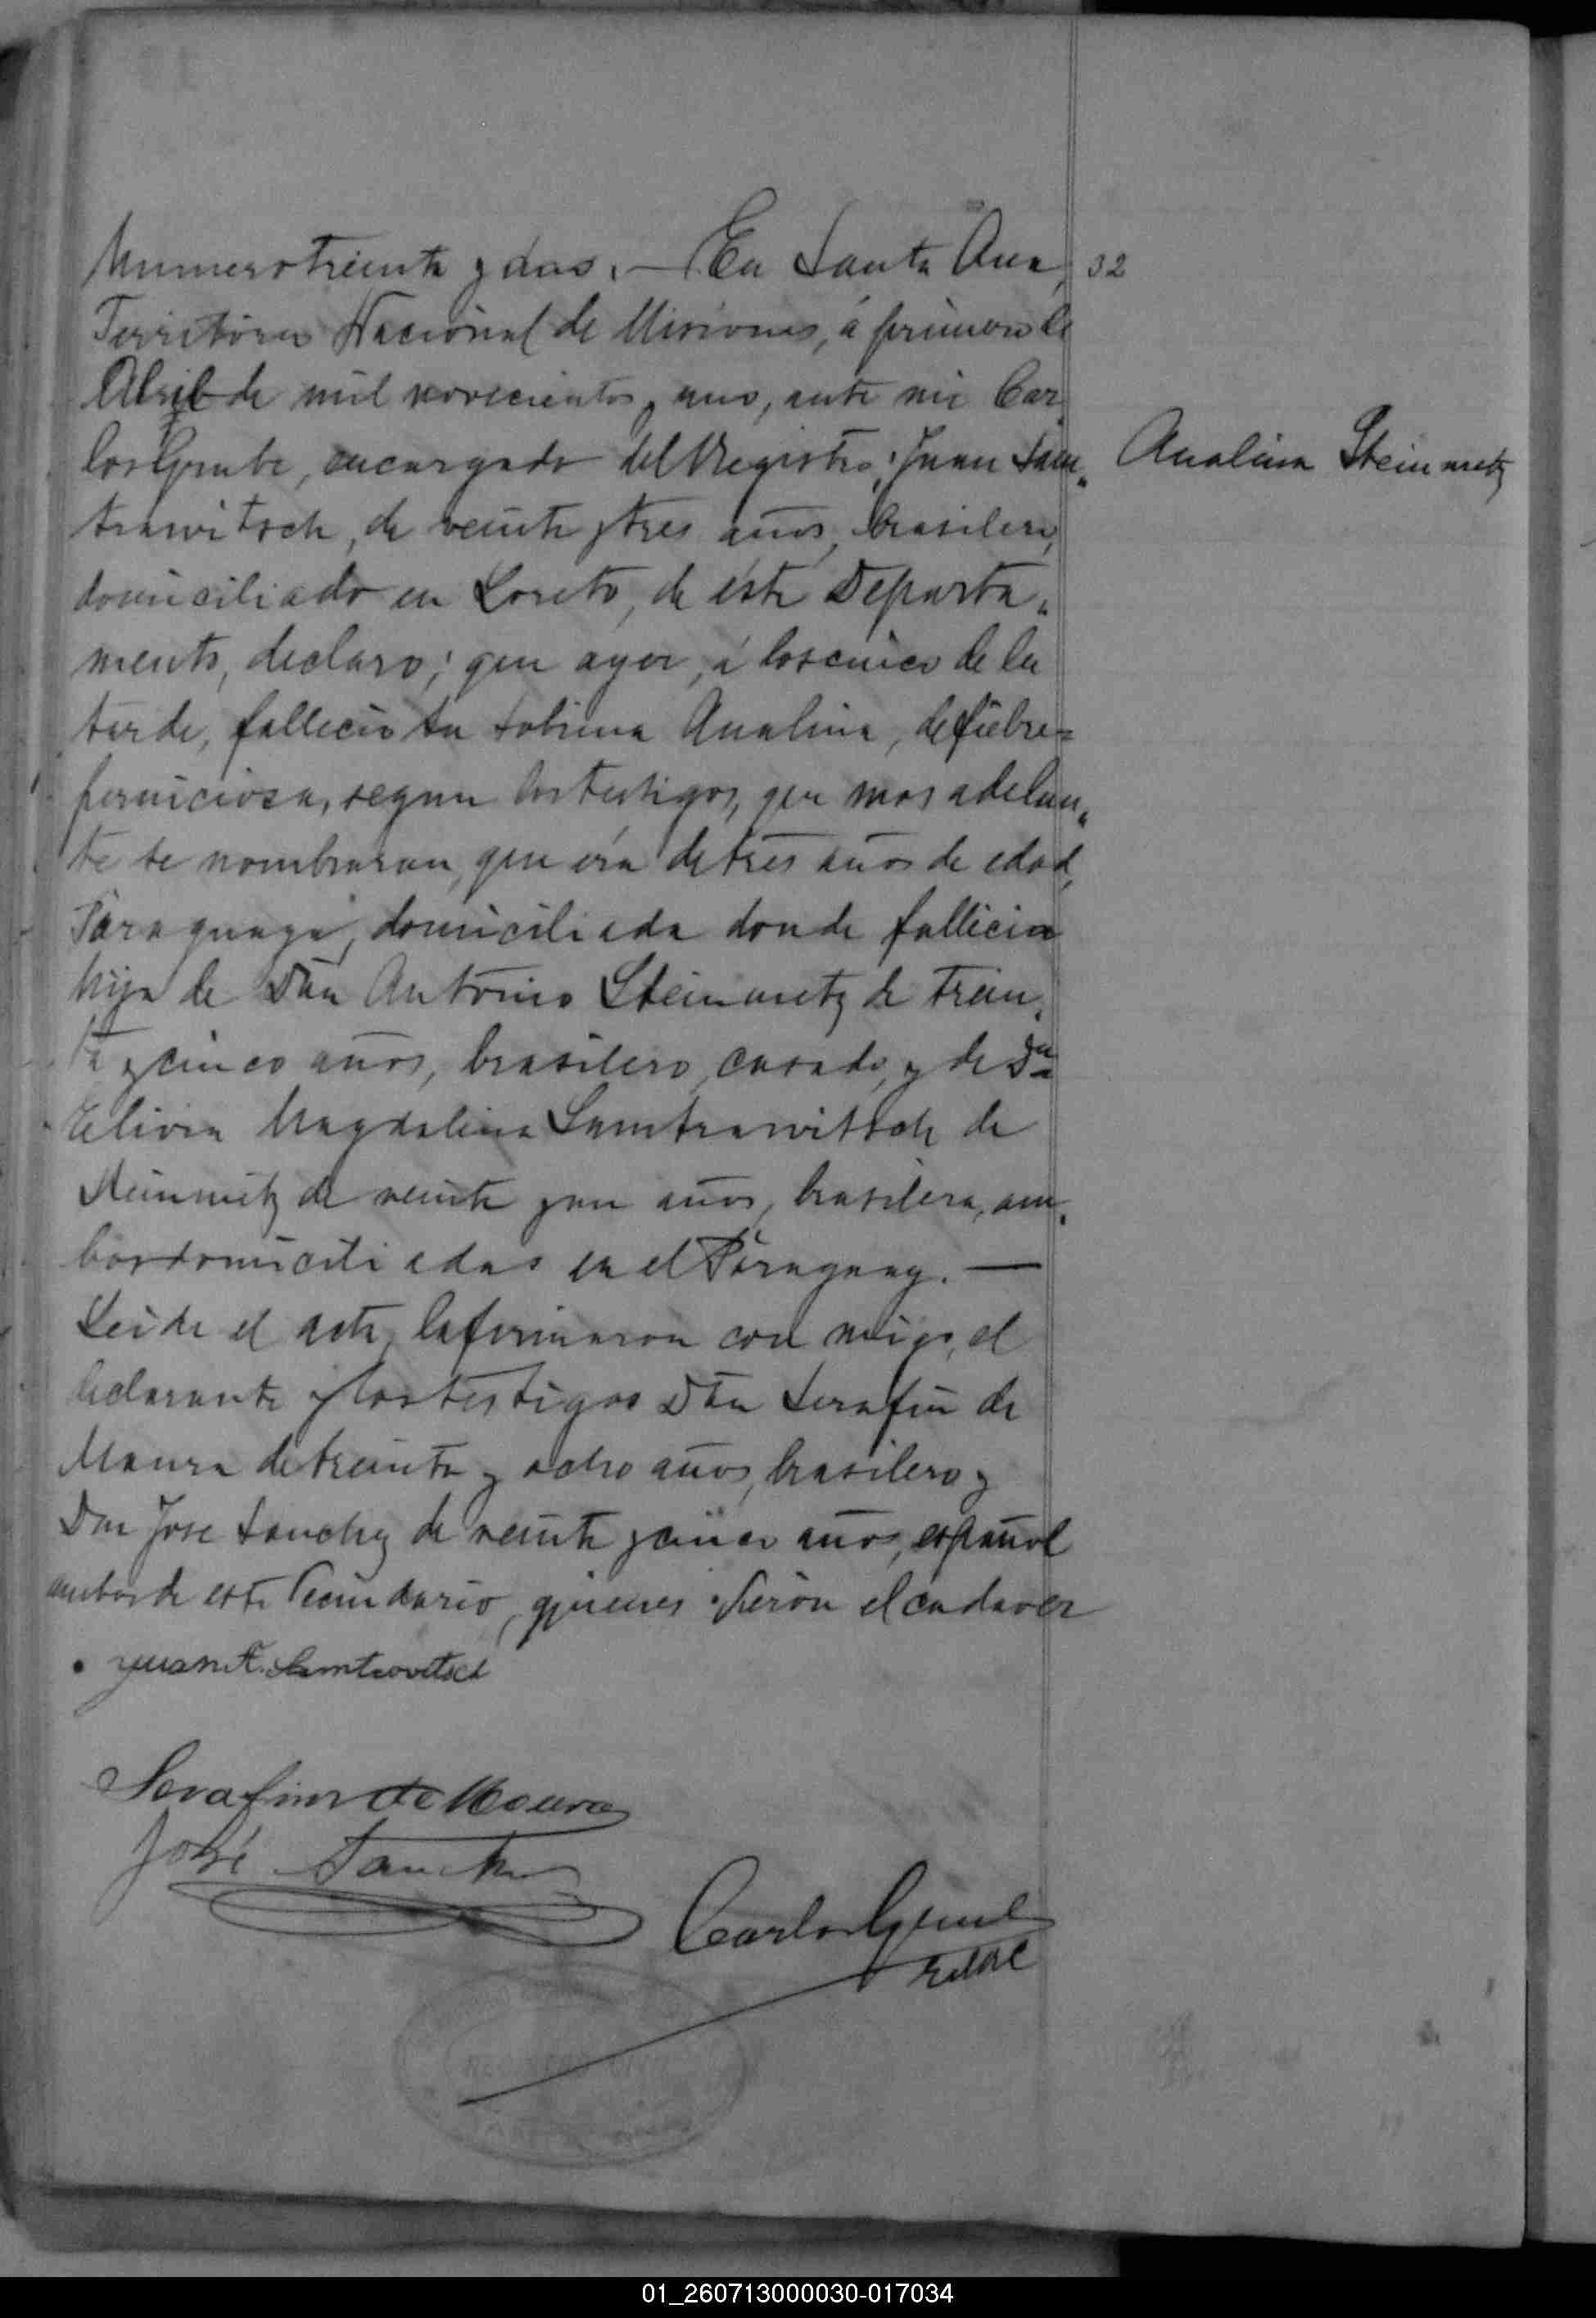 Numero treinta y dos. — En Santa Ana, 32
Territorio Nacional de Misiones, á primero de
Abril de mil novecientos y uno, ante mi Car
los Grube, encargado del Registro, Juan Sam„
trawitsch, de veinte y tres años, brasilero,
domiciliado en Loreto, de éste Departa„
mento, declaro; que ayer, á las cinco de la
tarde, fallecio su sobrina Analina, de fiebre=
perniciosa, segun los testigos, que mas adelan„
te se nombraran, que era de tres años de edad,
Paraguaya, domiciliada donde fallicio
hija de Don Antonio Steinmetz de trein„
ta y cinco años, brasilero, casado, y de Da
Elivia Magdalina Samtrawitsch de
Steinmetz de veinte y un años, brasilera, am„
bos domiciliados en el Paraguay. —
Leida el acta, la firmaron con migo, el
declarante y los testigos Don Serafin de
Moura de treinta y ocho años, brasilero y
Don Jose Sanchez de veinte y cinco años, español
ambos de este Vecindario, quienes vieron el cadaver
Analina Steinmetz
Juan F. Samtrovitsch
Serafim de Moura
José Sanchez
Carlos Grube
01_260713000030-017034